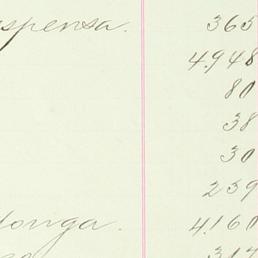 spensa. 365
4.948
80
38
30
239
onga. 4.160
317